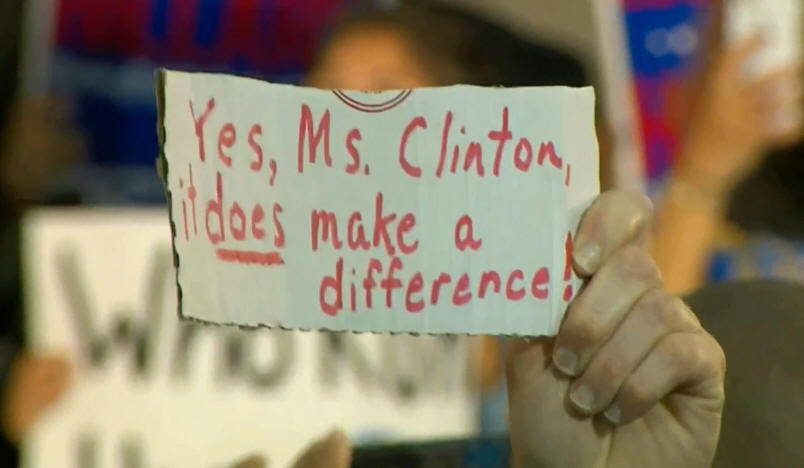 Yes, Ms. Clinton,
it does make a
difference!